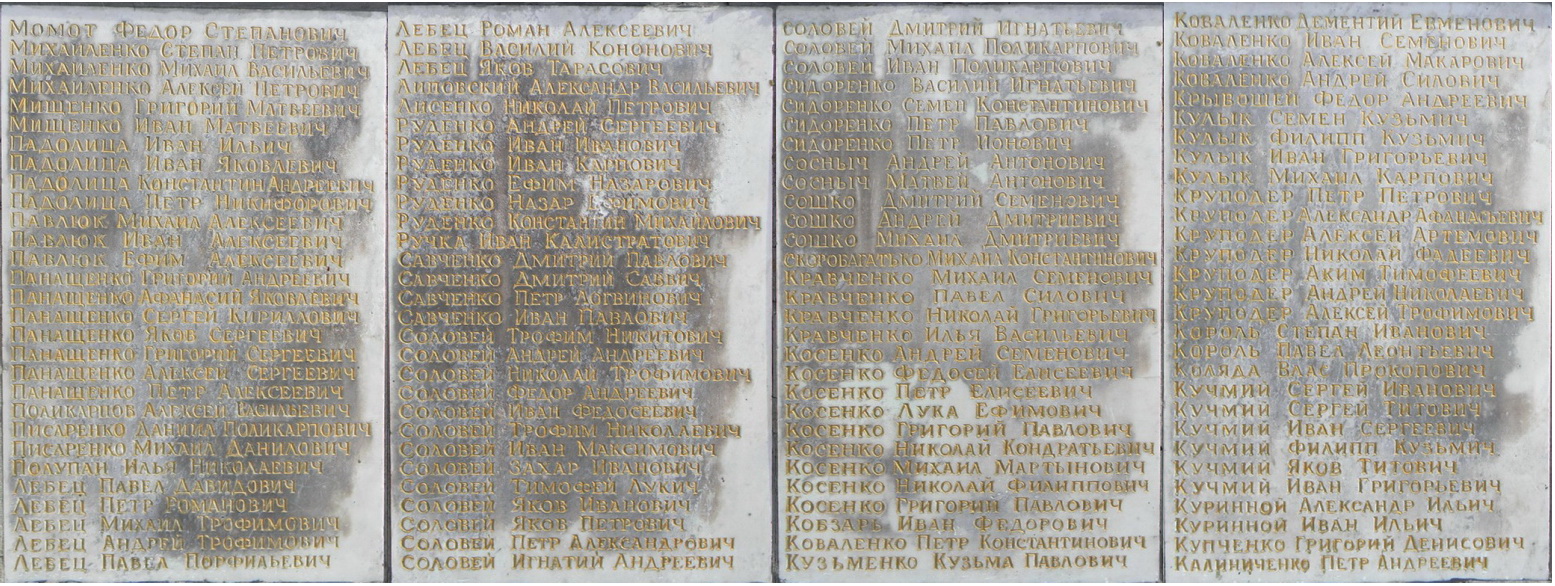 Момот Федор Степанович
Михайленко Степан Петрович
Михайленко Михаил Васильевич
Михайленко Алексей Петрович
Мищенко Григорий Матвеевич
Мищенко Иван Матвеевич
Падолица Иван Ильич
Падолица Иван Яковлевич
Падолица Константин Андреевич
Падолица Петр Никифорович
Павлюк Михаил Алексеевич
Павлюк Иван Алексеевич
Павлюк Ефим Алексеевич
Панащенко Григорий Андреевич
Панащенко Афанасий Яковлевич
Панащенко Сергей Кириллович
Панащенко Яков Сергеевич
Панащенко Григорий Сергеевич
Панащенко Алексей Сергеевич
Панащенко Петр Алексеевич
Поликарпов Алексей Васильевич
Писаренко Даниил Поликарпович
Писаренко Михаил Данилович
Полупан Илья Николаевич
Лебец Павел Давидович
Лебец Петр Романович
Лебец Михаил Трофимович
Лебец Андрей Трофимович
Лебец Павел Порфильевич
Лебец Роман Алексеевич
Лебец Василий Кононович
Лебец Яков Тарасович
Липовский Александр Васильевич
Лисенко Николай Петрович
Руденко Андрей Сергеевич
Руденко Иван Иванович
Руденко Иван Карпович
Руденко Ефим Назарович
Руденко Назар Ефимович
Руденко Константин Михайлович
Ручка Иван Калистратович
Савченко Дмитрий Павлович
Савченко Дмитрий Савич
Савченко Петр Логвинович
Савченко Иван Павлович
Соловей Трофим Никитович
Соловей Андрей Андреевич
Соловей Николай Трофимович
Соловей Федор Андреевич
Соловей Иван Федосеевич
Соловей Трофим Николаевич
Соловей Иван Максимович
Соловей Захар Иванович
Соловей Тимофей Лукич
Соловей Яков Иванович
Соловей Яков Петрович
Соловей Петр Александрович
Соловей Игнатий Андреевич
Соловей Дмитрий Игнатьевич
Соловей Михаил Поликарпович
Соловей Иван Поликарпович
Сидоренко Василий Игнатьевич
Сидоренко Семен Константинович
Сидоренко Петр Павлович
Сидоренко Петр Ионович
Сосныч Андрей Антонович
Сосныч Матвей Антонович
Сошко Дмитрий Семенович
Сошко Андрей Дмитриевич
Сошко Михаил Дмитриевич
Скоробагатько Михаил Константинович
Кравченко Михаил Семенович
Кравченко Павел Силович
Кравченко Николай Григорьевич
Кравченко Илья Васильевич
Косенко Андрей Семенович
Косенко Федосей Елисеевич
Косенко Петр Елисеевич
Косенко Лука Ефимович
Косенко Григорий Павлович
Косенко Николай Кондратьевич
Косенко Михаил Мартынович
Косенко Николай Филиппович
Косенко Григорий Павлович
Кобзарь Иван Федорович
Коваленко Петр Константинович
Кузьменко Кузьма Павлович
Коваленко Дементий Ерменович
Коваленко Иван Семенович
Коваленко Алексей Макарович
Коваленко Андрей Силович
Крывошей Федор Андреевич
Кулык Семен Кузьмич
Кулык Филипп Кузьмич
Кулык Иван Григорьевич
Кулык Михаил Карпович
Круподер Петр Петрович
Круподер Александр Афанасьевич
Круподер Алексей Артемович
Круподер Николай Фадеевич
Круподер Аким Тимофеевич
Круподер Андрей Николаевич
Круподер Алексей Трофимович
Король Степан Иванович
Король Павел Леонтьевич
Коляда Влас Прокопович
Кучмий Сергей Иванович
Кучмий Сергей Титович
Кучмий Иван Сергеевич
Кучмий Филипп Кузьмич
Кучмий Яков Титович
Кучмий Иван Григорьевич
Куринной Александр Ильич
Куринной Иван Ильич
Купченко Григорий Денисович
Калиниченко Петр Андреевич